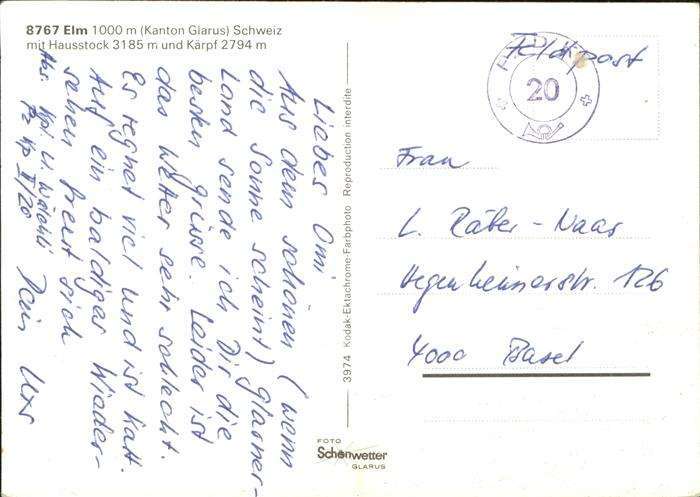 8767 Elm 1000 m (Kanton Glarus) Schweiz
mit Hausstock 3185 m und Kärpf 2794 m
Liebes Omi,
Aus dem schönen (wenn
die Sonne scheint) Glarner-
land sende ich Dir die
besten Grüsse. Leider ist
das Wetter sehr schlecht.
Es regnet viel und ist kalt.
Auf ein baldiges Wieder-
sehen freut sich
Dein Urs
Abs. Kpl. U.
Fz Kp II/20
3974 Kodak-Ektachrome-Farbphoto Reproduction interdite
FOTO
Schönwetter
GLARUS
Feldpost
20
Frau
L. Räber-Naas
Hegenheimerstr. 126
4000 Basel